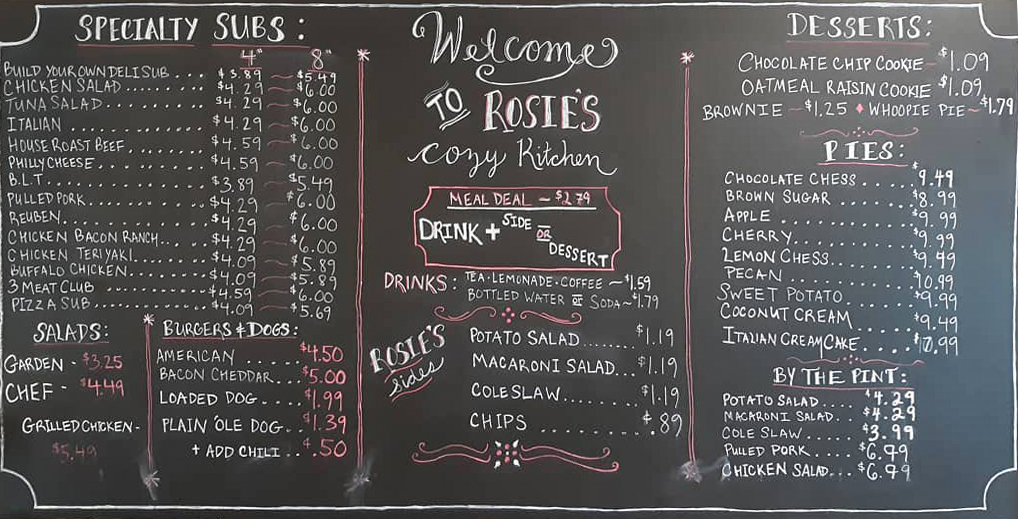 SPECIALTY SUBS:
4" 8"
BUILD YOUR OWN DELI SUB... $3.89 ~ $5.49
CHICKEN SALAD....... $4.29 ~ $6.00
TUNA SALAD......... $4.29 ~ $6.00
ITALIAN............ $4.29 ~ $6.00
HOUSE ROAST BEEF....... $4.59 ~ $6.00
PHILLY CHEESE........ $4.59 ~ $6.00
B.L.T............. $3.89 ~ $5.49
PULLED PORK........ $4.29 ~ $6.00
REUBEN........... $4.29 ~ $6.00
CHICKEN BACON RANCH... $4.29 ~ $6.00
CHICKEN TERIYAKI...... $4.09 ~ $5.89
BUFFALO CHICKEN...... $4.09 ~ $5.89
3 MEAT CLUB........ $4.59 ~ $6.00
PIZZA SUB.......... $4.09 ~ $5.69
SALADS:
GARDEN - $3.25
CHEF - $4.49
GRILLED CHICKEN -
$5.49
BURGERS & DOGS:
AMERICAN..... $4.50
BACON CHEDDAR... $5.00
LOADED DOG.... $1.99
PLAIN 'OLE DOG.. $1.39
+ ADD CHILI.. $.50
Welcome
TO ROSIE'S
cozy Kitchen
MEAL DEAL ~ $2.79
DRINK + SIDE OR DESSERT
DRINKS: TEA · LEMONADE · COFFEE ~ $1.59
BOTTLED WATER OR SODA ~ $1.79
ROSIE'S
sides
POTATO SALAD...... $1.19
MACARONI SALAD... $1.19
COLESLAW........ $1.19
CHIPS......... $.89
DESSERTS:
CHOCOLATE CHIP COOKIE ~ $1.09
OATMEAL RAISIN COOKIE $1.09
BROWNIE ~ $1.25 ♦ WHOOPIE PIE ~ $1.79
PIES:
CHOCOLATE CHESS..... $9.49
BROWN SUGAR....... $8.99
APPLE.......... $9.99
CHERRY......... $9.99
LEMON CHESS....... $9.49
PECAN.......... $10.99
SWEET POTATO..... $9.99
COCONUT CREAM..... $9.49
ITALIAN CREAM CAKE.... $10.99
BY THE PINT:
POTATO SALAD..... $4.29
MACARONI SALAD.... $4.29
COLE SLAW...... $3.99
PULLED PORK.... $6.99
CHICKEN SALAD... $6.99